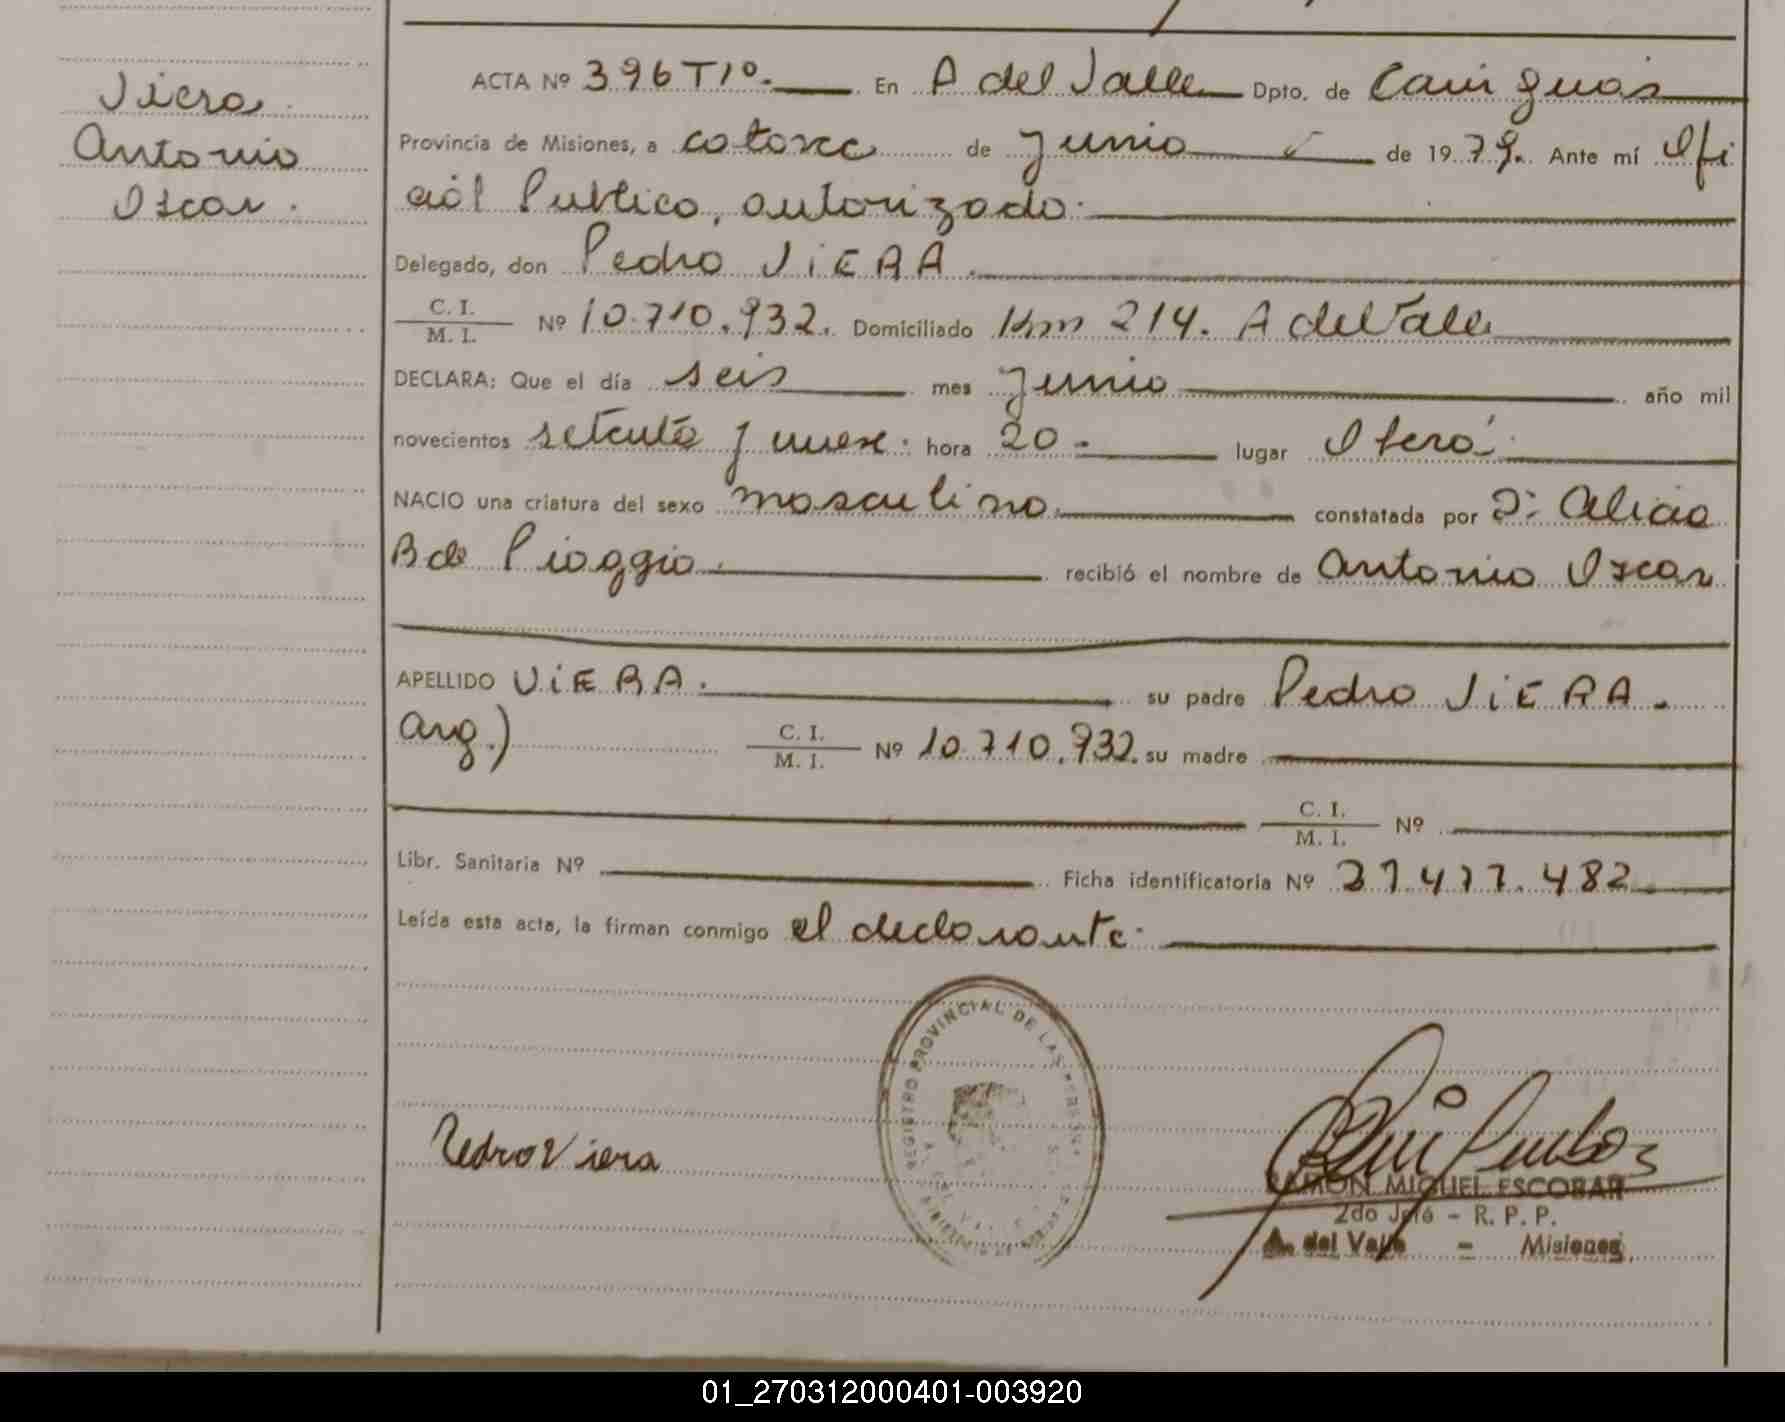 Viera
Antonio
Oscar.
ACTA Nº 396 T1º. En A del Valle Dpto. de Cainguás
Provincia de Misiones, a catorce de Junio de 19 79. Ante mí Ofi
cial Publico, autorizado.
Delegado, don Pedro ViERA.
C. I.
M. I. Nº 10.710.932. Domiciliado Km 214. A del Valle
DECLARA: Que el día seis mes Junio año mil
novecientos setenta y nueve. hora 20 lugar Oberá
NACIO una criatura del sexo masculino. constatada por Dª Alicia
B de Pioggio. recibió el nombre de Antonio Oscar
APELLIDO ViERA. su padre Pedro ViERA.
Arg.) C. I.
M. I. Nº 10.710.932. su madre
C. I.
M. I. Nº
Libr. Sanitaria Nº Ficha identificatoria Nº 27.477.482.
Leída esta acta, la firman conmigo el declarante.
REGISTRO PROVINCIAL DE LAS PERSONAS
Pedro Viera
RAMON MIGUEL ESCOBAR
2do Jefe - R. P. P.
A. del Valle - Misiones
01_270312000401-003920